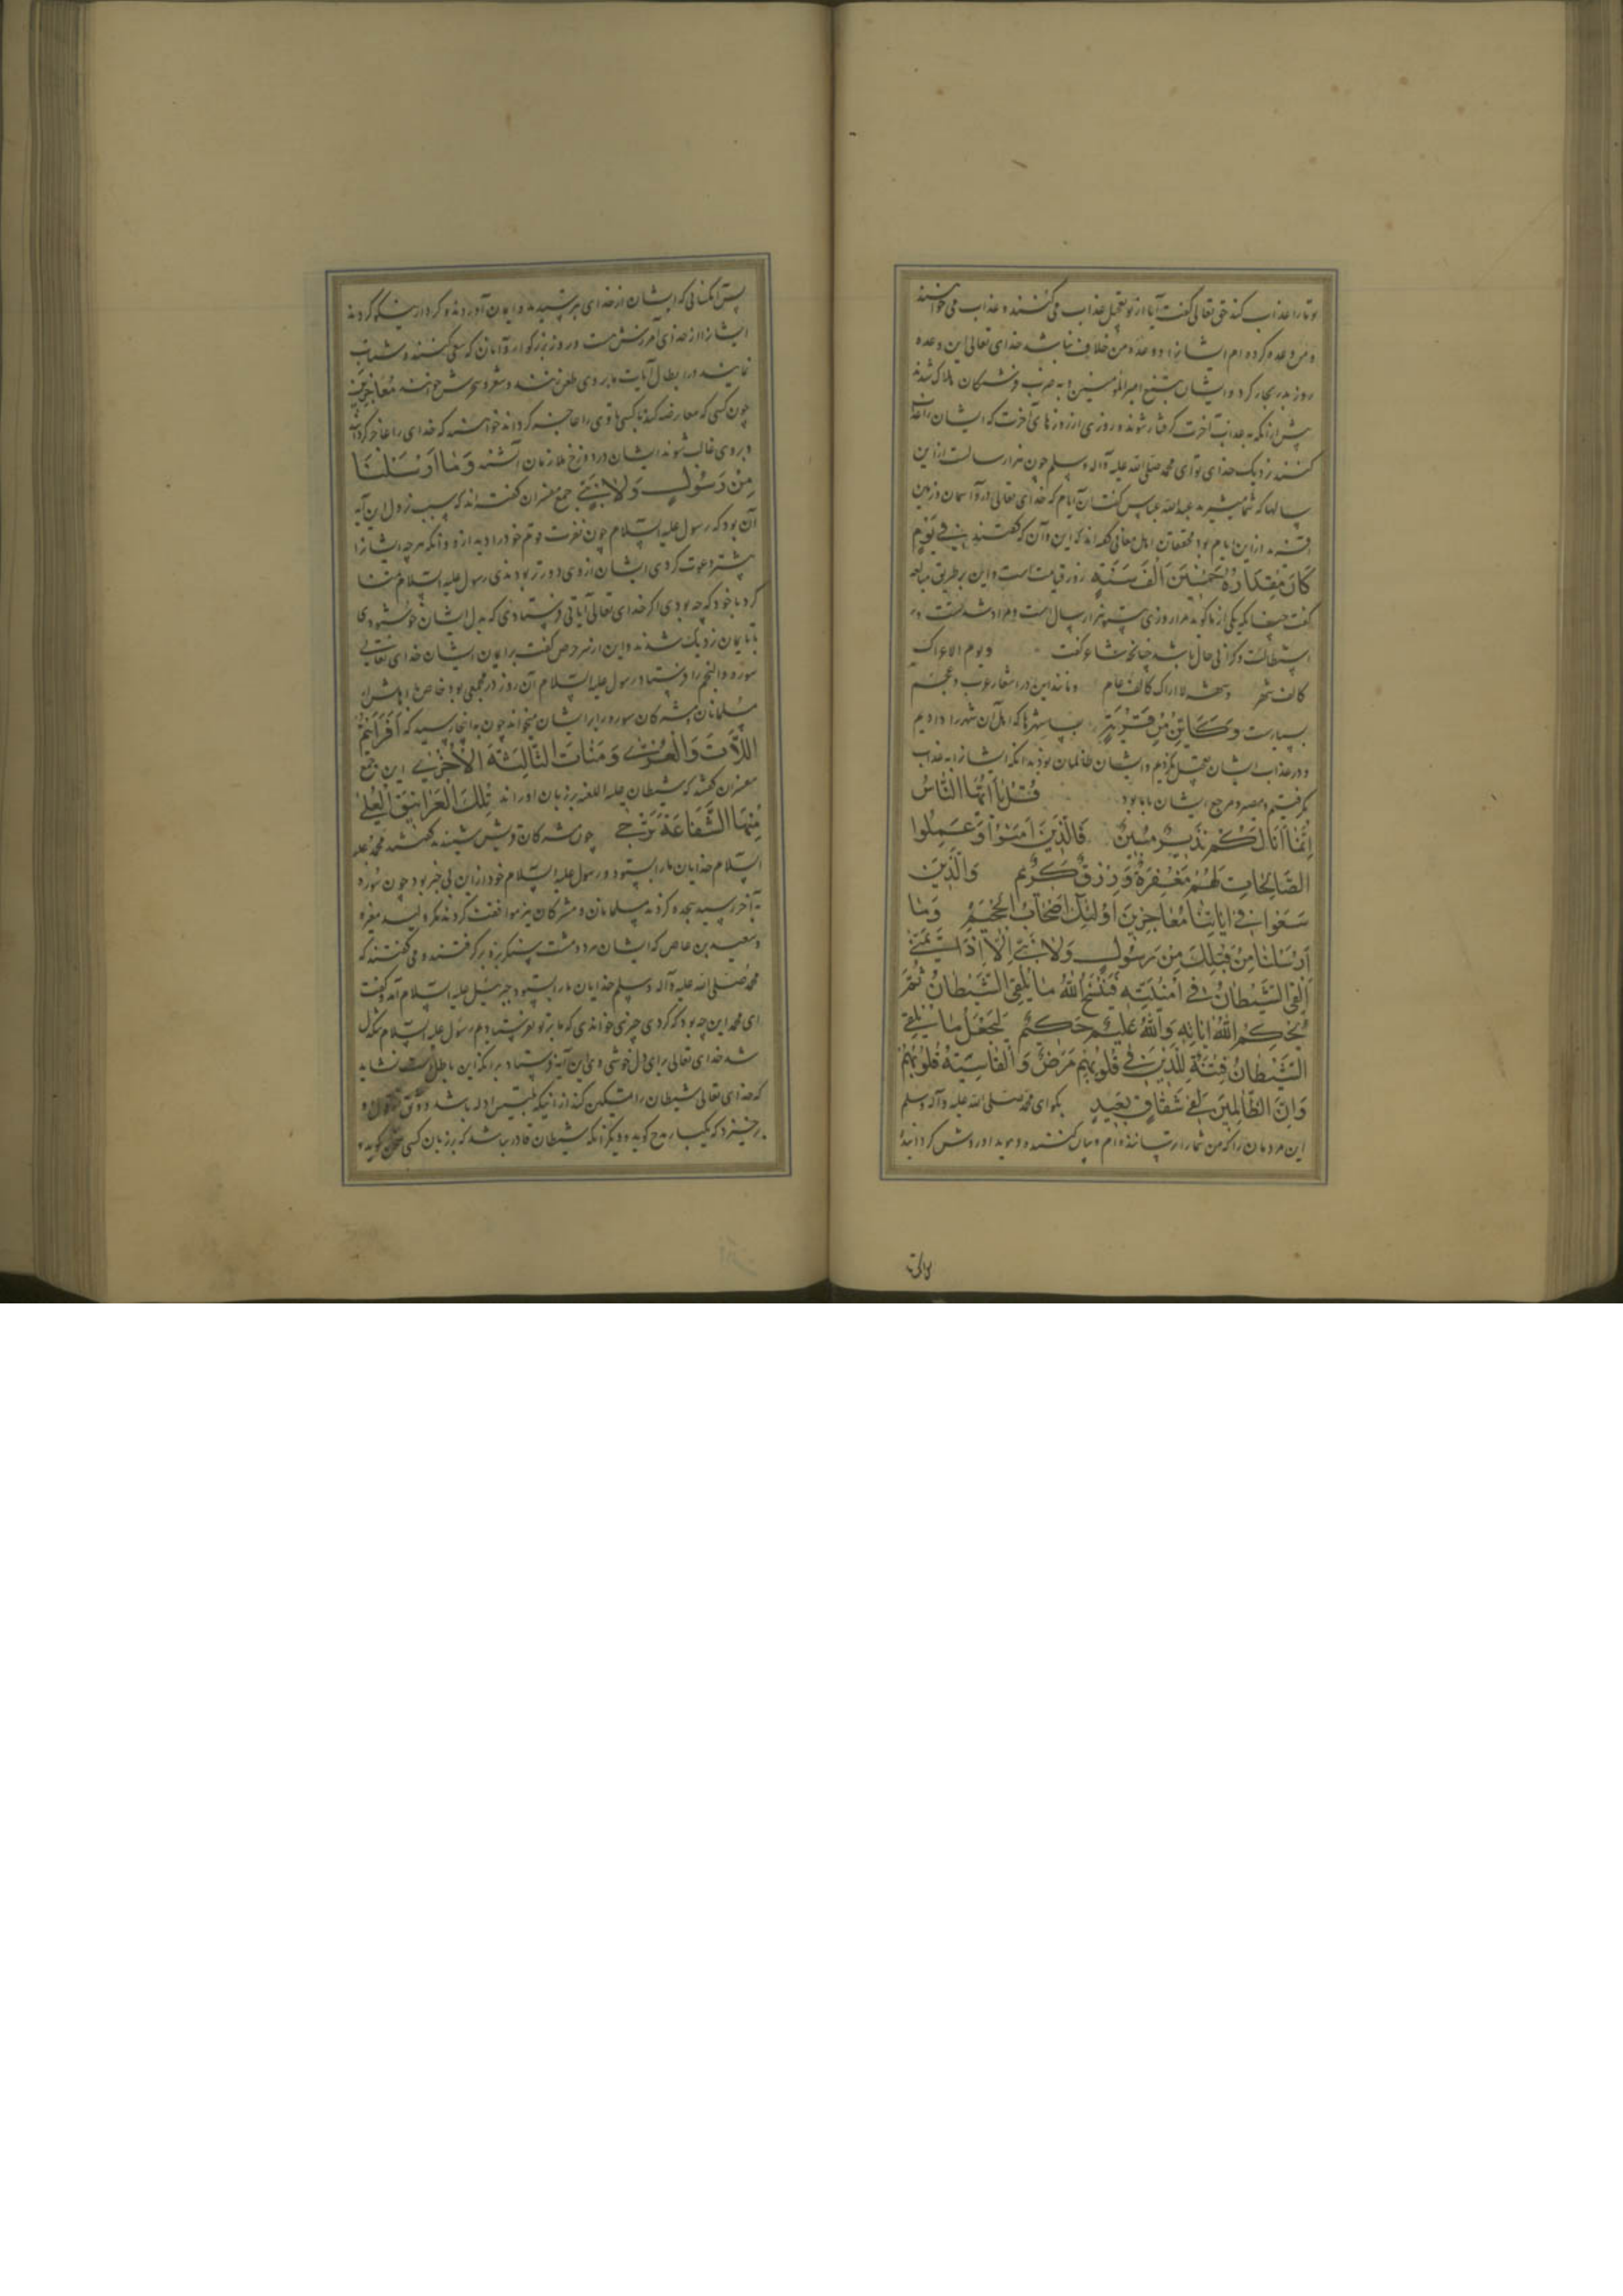 تو تا را عذاب کند حق تعالی گفت آیا از تو تعجیل عذاب می کنند و عذاب می خواهند
و من وعده کرده ام ایشانرا و وعده من خلاف نباشد خدای تعالی این وعده
روز بدر بجار کرد و ایشان بتیغ امیرالمؤمنین و به ضرب فرشتکان هلاک شدند
پیش از آنکه بعذاب آخرت کرفتار شوند و روزی از روزهای آخرت که ایشان را عذاب
کنند نزدیک خدای تو ای محمد صلی الله علیه و آله و سلم چون هزار سالست از این
سالها که شما میشمرید عبدالله عباس کفت آن ایام که خدای تعالی در و آسمان و زمین
آفرید از این ایام بود محققان اهل معانی گفته اند که این و آن که گفتند فی یوم
کان مقداره خمسین الف سنة روز قیامت است و این بر طریق مبالغه
گفت چنانکه یکی از ما کوید مرا روزی هزار سال است و مراد شدت و
استطالت و کرانی حال باشد چنانکه شاعر گفت ویوم الاعراک
کالف شهر وشهر لا اراک کالف عام و مانند این در اشعار عرب و عجم
بسیارست وکاین من قریة بسا شهرها که اهل آن شهر را دادیم
و در عذاب ایشان تعجیل نکردیم و ایشان ظالمان بودند آنکه ایشانرا به عذاب
بکرفتیم و مصیر و مرجع ایشان با ما بود قل یا ایها الناس
انما انا لکم نذیر مبین فالذین امنوا وعملوا
الصالحات لهم مغفرة ورزق کریم والذین
سعوا فی ایاتنا معاجزین اولئک اصحاب الجحیم وما
ارسلنا من قبلک من رسول ولا نبی الا اذا تمنی
القی الشیطان فی امنیته فینسخ الله ما یلقی الشیطان ثم
یحکم الله ایاته والله علیم حکیم لیجعل ما یلقی
الشیطان فتنة للذین فی قلوبهم مرض والقاسیة قلوبهم
وان الظالمین لفی شقاق بعید بکو ای محمد صلی الله علیه و آله وسلم
این مردمان را که من شما را ترساننده ام و بیان کننده و هویدا و روشن کرداننده
پس آنکسانی که ایشان از خدای بترسیدند و ایمان آوردند و کردار نیکو کردند
ایشانرا از خدای آمرزش است و روزی بزرکوار و آنان که سعی کنند و شتاب
نمایند در ابطال آیات ما بر وی طعن زنند و شعر و سحرش خوانند معاجزین
چون کسی که معارضه کند با کسی تا وی را عاجز کرداند خواهند که خدای را عاجز کردانند
و بر وی غالب شوند ایشان در دوزخ ملازمان آتشند وما ارسلنا
من رسول ولا نبی جمع مفسران کفته اند که سبب نزول این آیه
آن بود که رسول علیه السلام چون نفرت قوم خود را دید از او و آنکه هرچه ایشانرا
بیشتر دعوت کردی ایشان از وی دورتر بودندی رسول علیه السلام تمنا
کرد با خود که چه بودی اگر خدای تعالی آیاتی فرستادی که بدل ایشان خوش بودی
تا بایمان نزدیک شدند و این از سر حرص گفت بر ایمان ایشان خدای تعالی
سوره والنجم را فرستاد رسول علیه السلام آن روز در مجمعی بود خاص باشراف
مسلمانان و مشرکان سوره برایشان میخواند چون به اینجا رسید که افرأیتم
اللات والعزی ومنات الثالثة الاخری این جمع
مفسران گفتند که شیطان علیه اللعنه بر زبان او راند تلک الغرانیق العلی
منها الشفاعة ترتجی چون مشرکان قریش شنیدند گفتند محمد علیه
السلام خدایان ما را بستود و رسول علیه السلام خود از آن بی خبر بود چون سوره
به آخر رسید سجده کردند مسلمانان و مشرکان نیز موافقت کردند مکر ولید مغیره
و سعید بن عاص که ایشان هر دو مشت سنکریزه برکرفتند و می گفتند که
محمد صلی الله علیه و آله و سلم خدایان ما را بستود جبرئیل علیه السلام آمد و گفت
ای محمد این چه بود که کردی چیزی خواندی که ما بر تو نفرستادیم رسول علیه السلام تنکدل
شد خدای تعالی برای دل خوشی وی این آیه فرستاد بدانکه این باطل است نشاید
که خدای تعالی شیطان را تمکین کند از آنکه تلبیس ادله باشد و وثوق از قول او
برخیزد که یکبار مدح کوید و دیگر آنکه شیطان قادر نباشد که بر زبان کسی سخن گوید